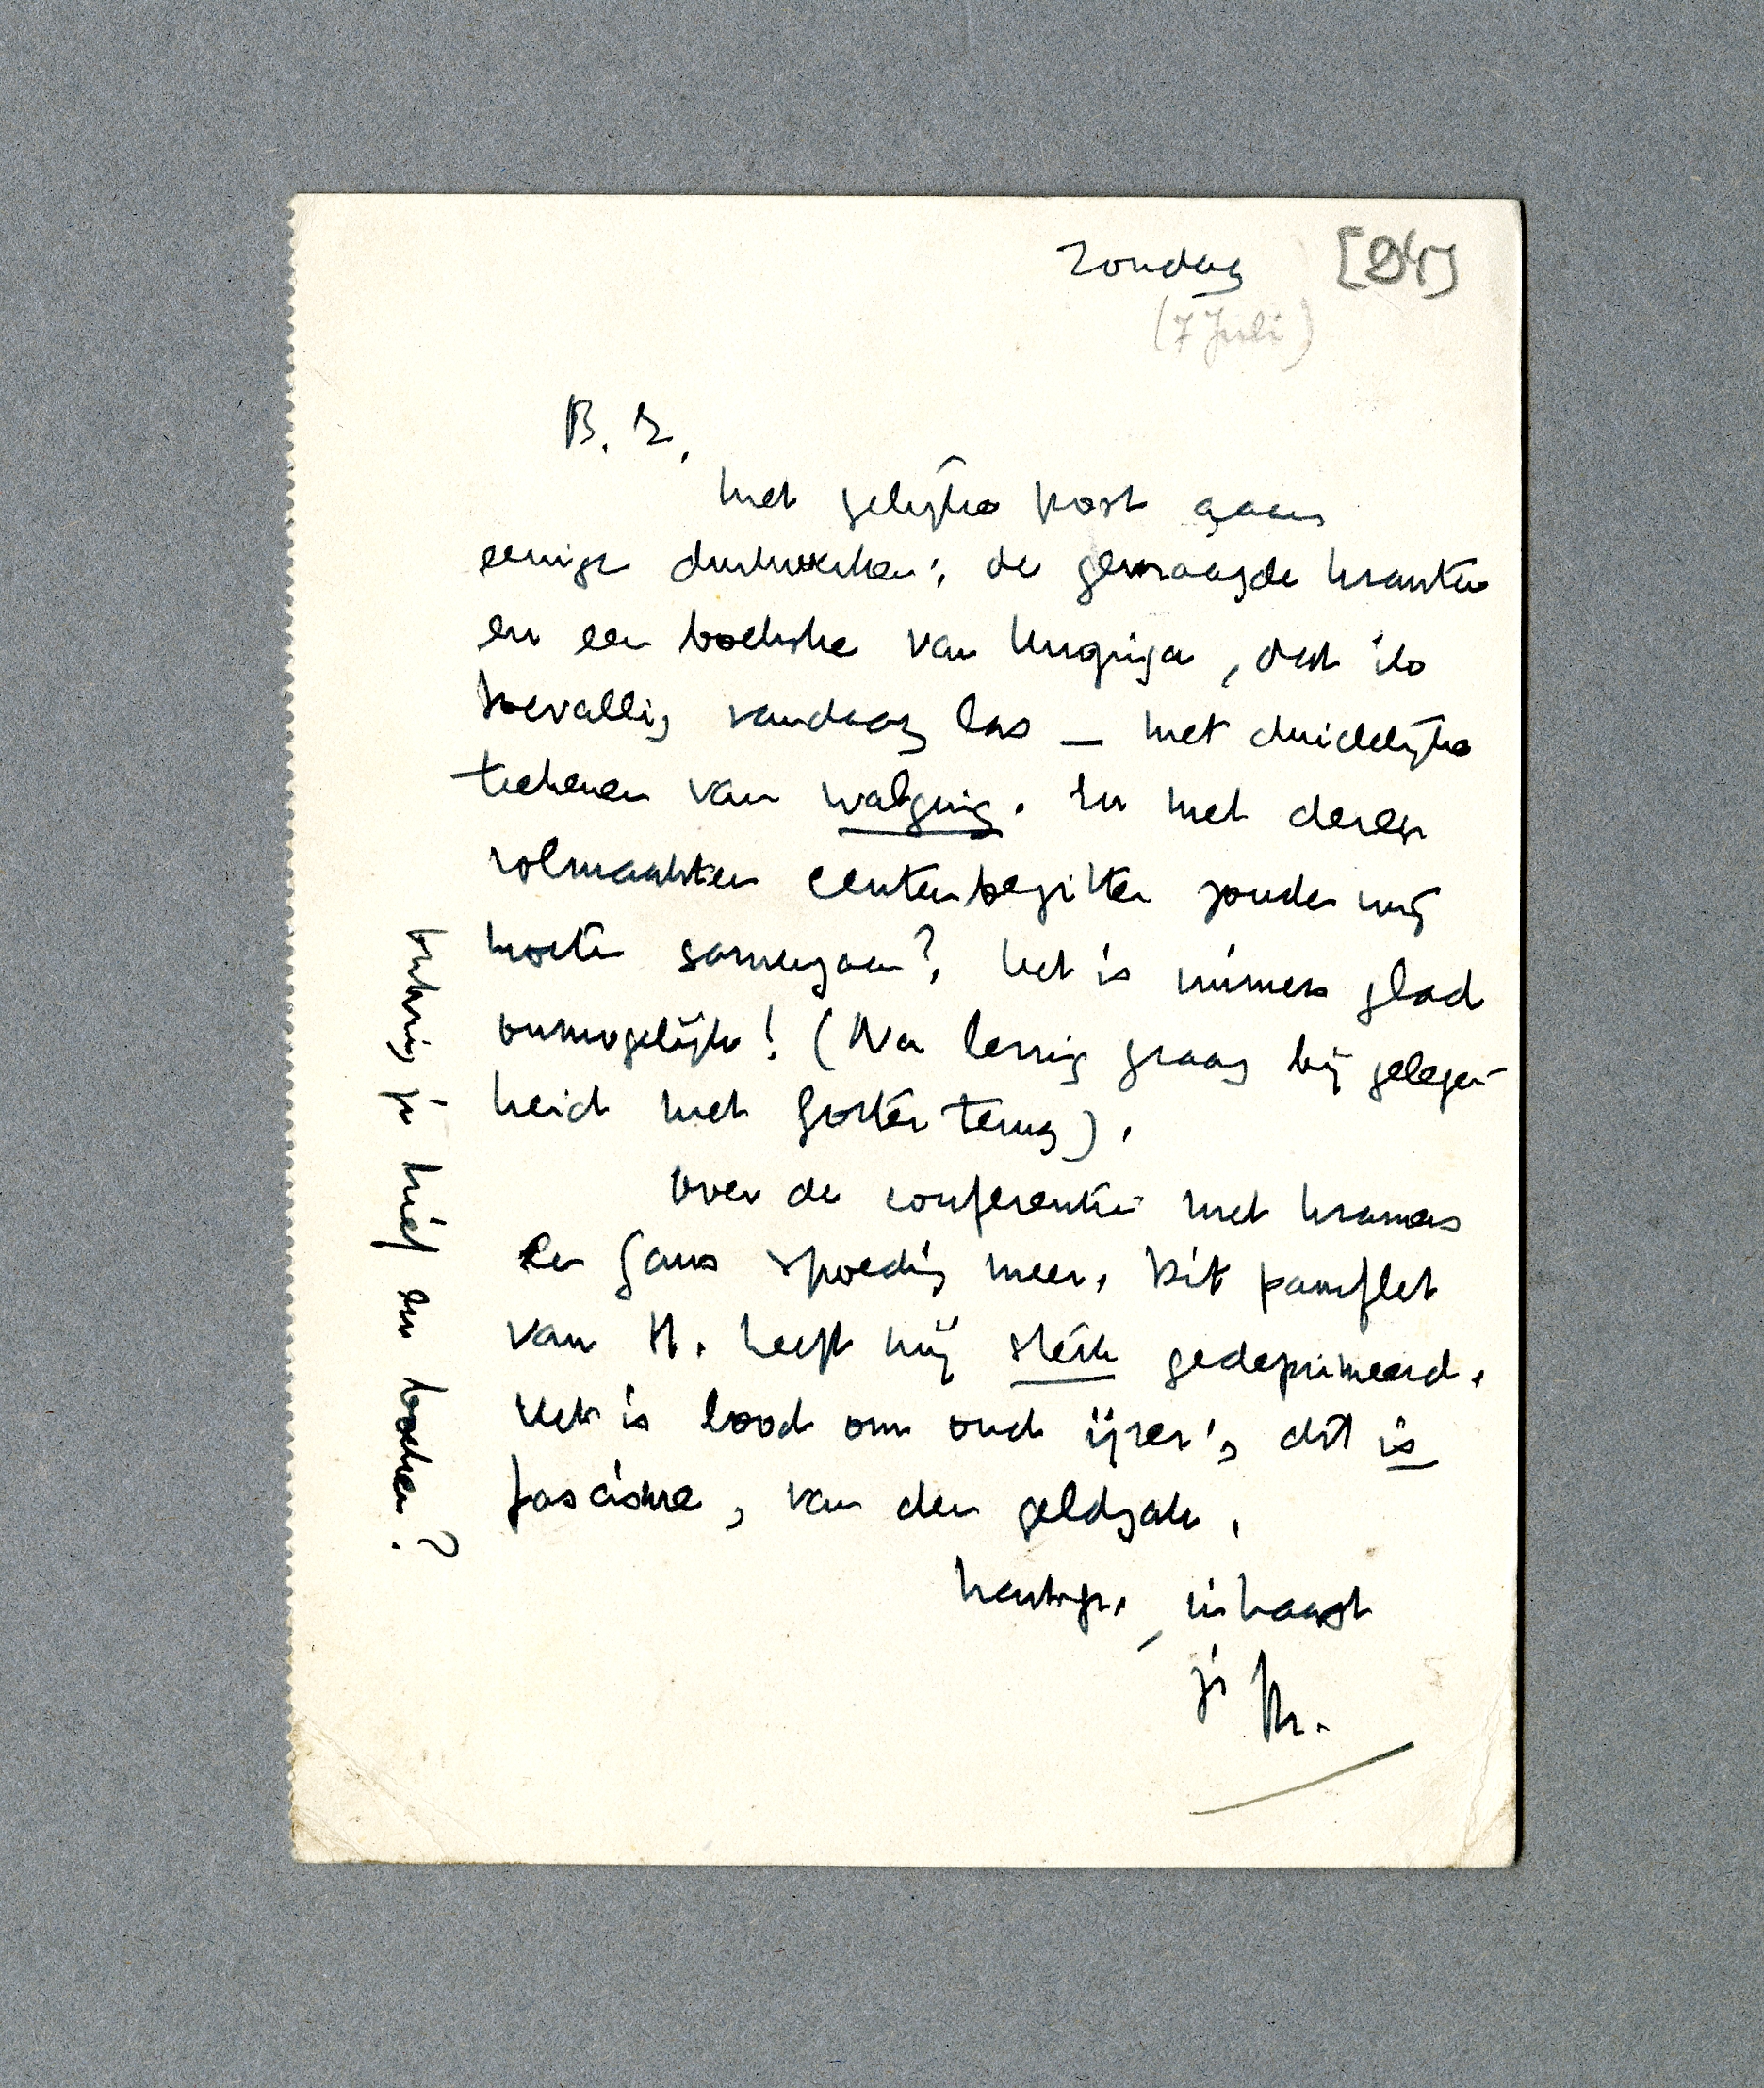 Zondag [84]
(7 Juli)
B. E.,
Met gelijke post gaan
eenige drukwerken: de gevraagde kranten
en een boekske van Huizinga, dat ik
toevallig vandaag las — met duidelijke
teekenen van walging. En met dezen
volmaakten centenbezitter zouden wij
moeten samengaan? Het is immers glad
onmogelijk! (Na lezing graag bij gelegen-
heid met Gorter terug).
Over de conferentie met Kramers
en Gans spoedig meer. Dit pamflet
van H. heeft mij sterk gedeprimeerd.
Het is lood om oud ijzer; dit is
fascisme, van den geldzak.
hart. gr., in haast
je M.
Ontving je brief en boeken?